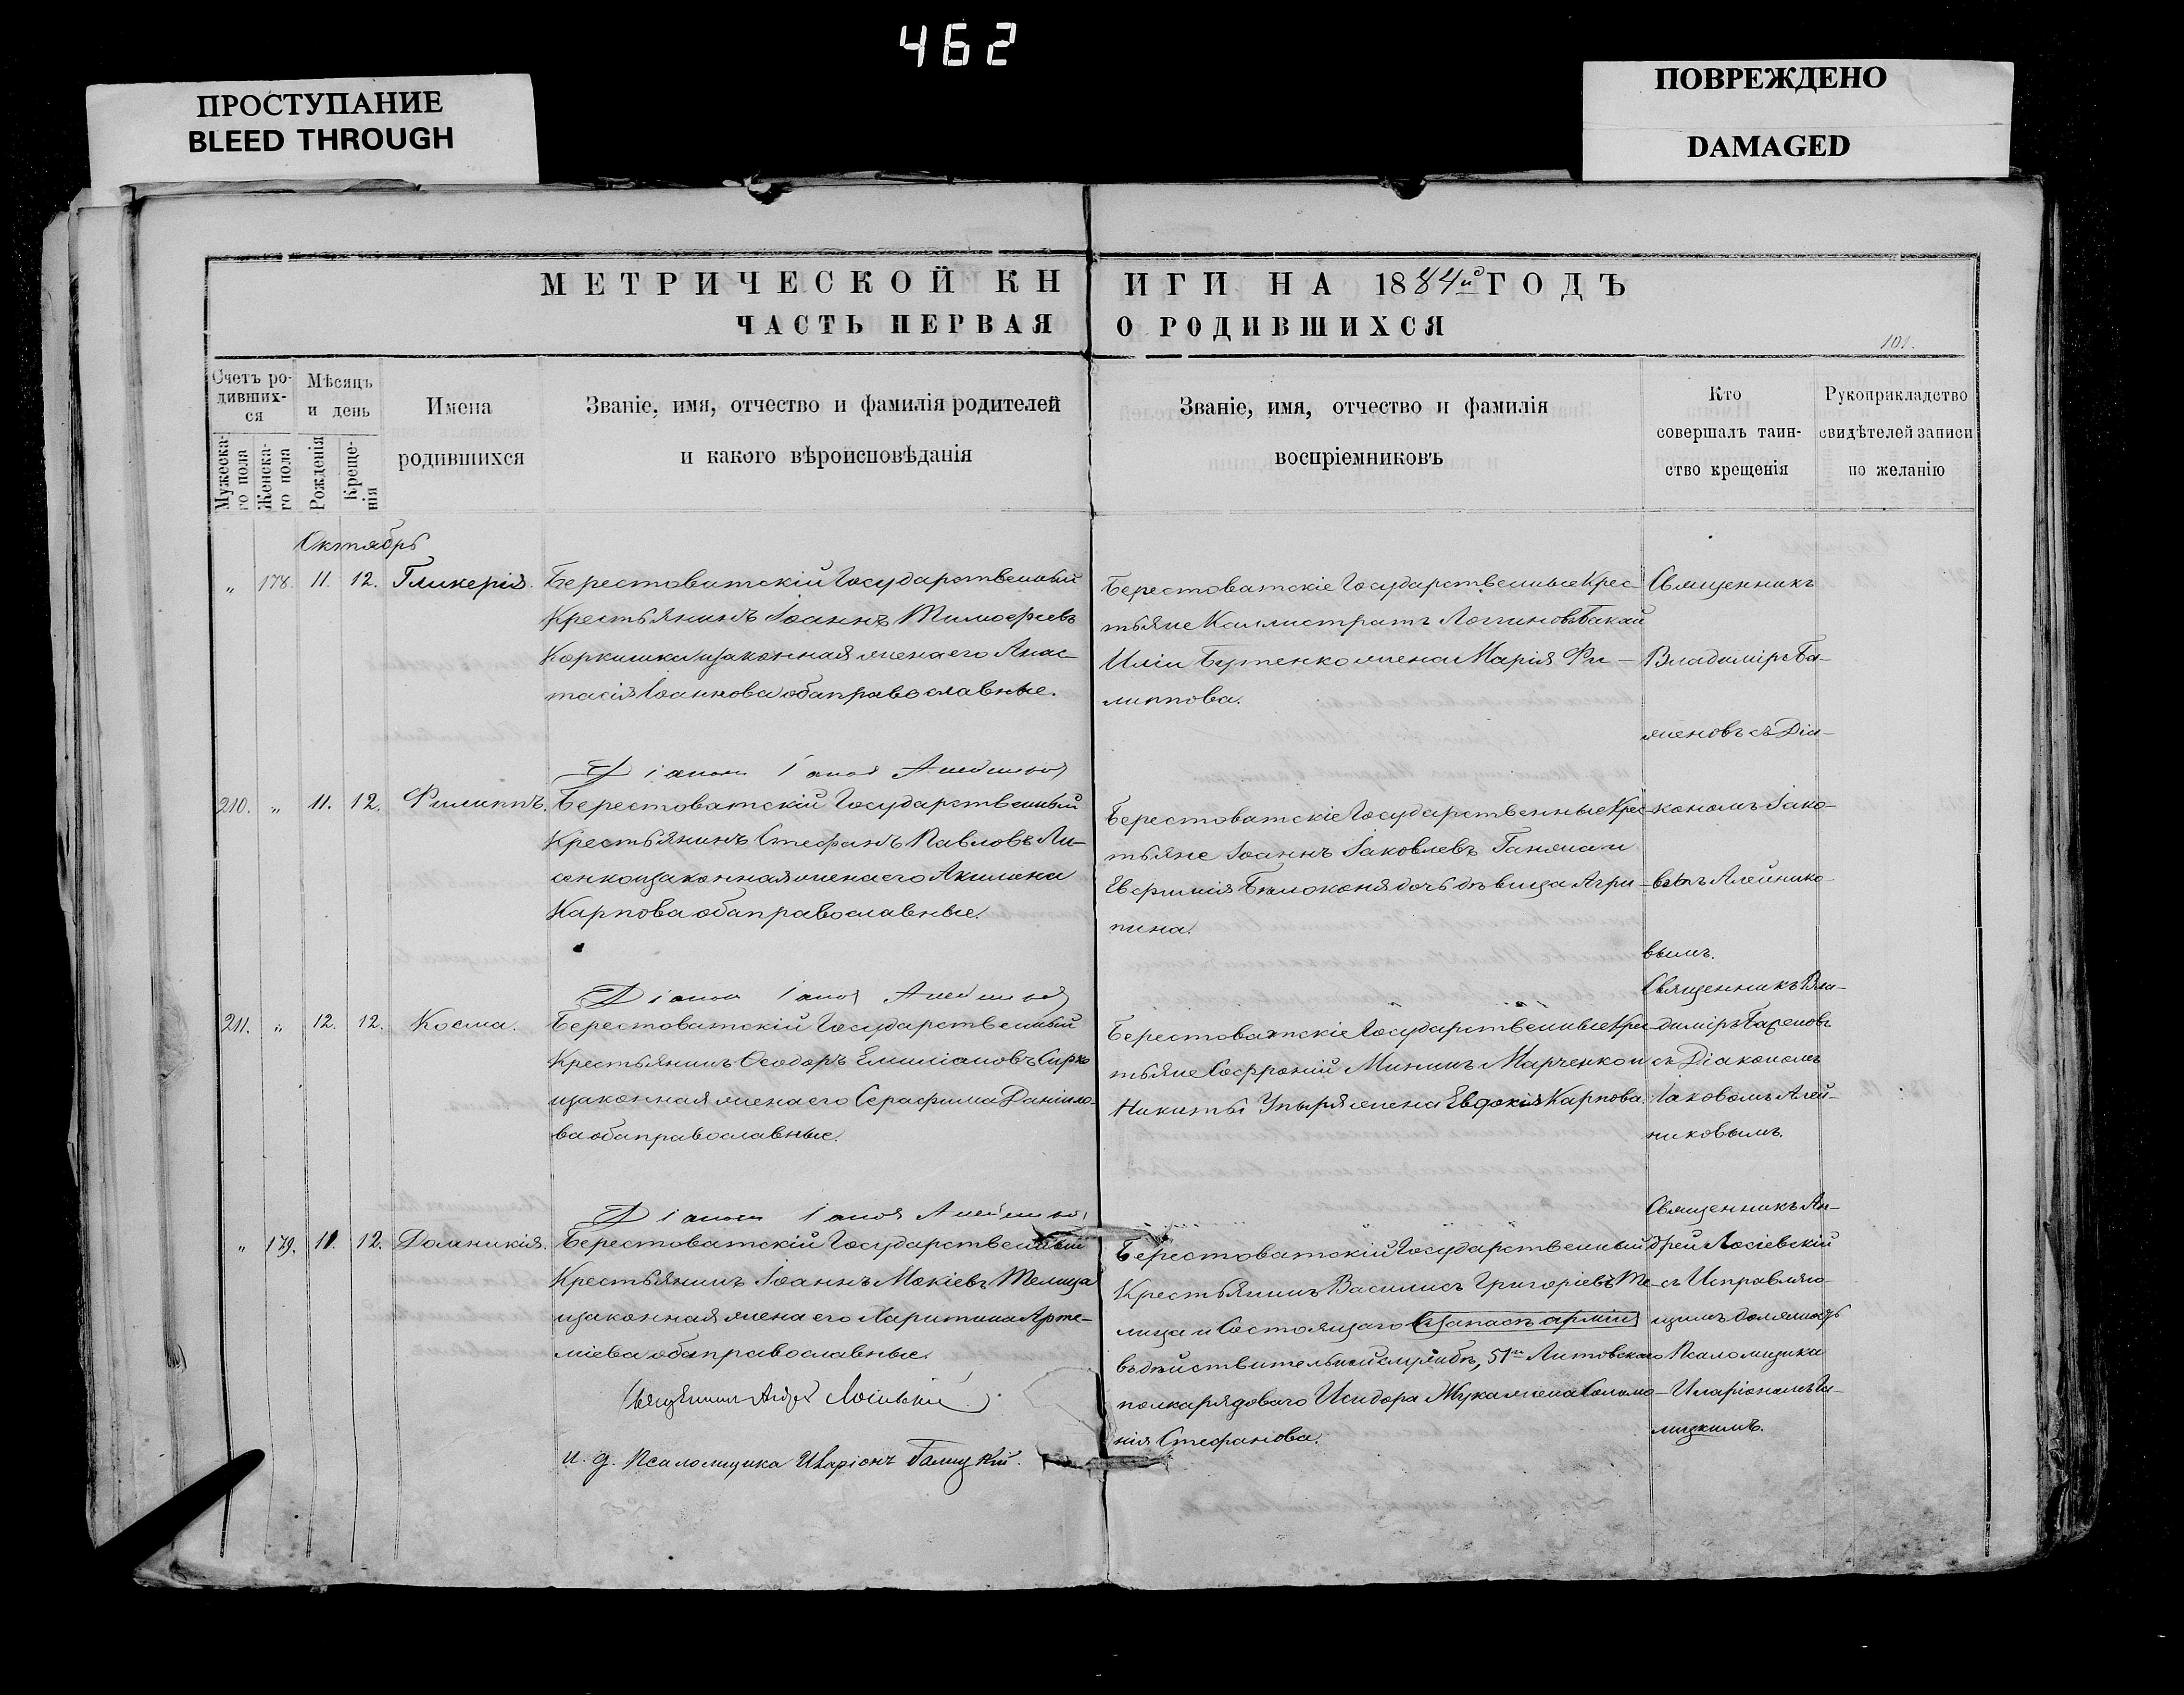 462
ПРОСТУПАНИЕ
BLEED THROUGH
ПОВРЕЖДЕНО
DAMAGED
МЕТРИЧЕСКОЙ КНИГИ НА 1884й ГОДЪ
ЧАСТЬ ПЕРВАЯ О РОДИВШИХСЯ
101.
Счетъ ро-
дивших-
ся
Мужеска-
го пола
Женска-
го пола
Мѣсяцъ
и день
Рожденія
Креще-
нія
Имена
родившихся
Званіе, имя, отчество и фамилія родителей
и какого вѣроисповѣданія
Званіе, имя, отчество и фамилія
воспріемниковъ
Кто
совершалъ таин-
ство крещенія
Рукоприкладство
свидѣтелей записи
по желанію
Октябрь
„ 178. 11. 12. Гликерія.
Берестоватскій Государственный
Крестьянинъ Іоаннъ Тимофеевъ
Коркишка и законная жена его Анас-
тасія Іоаннова оба православные.
Берестоватскіе Государственные Крес-
тьяне Каллистратъ Логиновъ Бакай
Иліи Бутенко жена Марія Фи-
липпова.
Священникъ
Владиміръ Ба-
женовъ съ Діа-
кономъ Іако-
вомъ Алейнико-
вымъ.
210. „ 11. 12. Филиппъ.
Берестоватскій Государственный
Крестьянинъ Стефанъ Павловъ Ли-
сенко и законная жена его Акилина
Карпова оба православные.
Берестоватскіе Государственные Крес-
тьяне Іоаннъ Іаковлевъ Ганжа и
Евфимія Бѣлоконя дочь дѣвица Агри-
пина.
211. „ 12. 12. Косма.
Берестоватскій Государственный
Крестьянинъ Ѳеодоръ Емиліановъ Сирко
и законная жена его Серафима Даніило-
ва оба православные.
Берестоватскіе Государственные Крес-
тьяне Софроній Мининъ Марченко и
Никиты Упыря жена Евдокія Карпова.
Священникъ Вла-
диміръ Баженовъ
съ Діакономъ
Іаковомъ Алей-
никовымъ.
„ 179. 11. 12. Домникія.
Берестоватскій Государственный
Крестьянинъ Іоаннъ Мокіевъ Телица
и законная жена его Харитина Арте-
міева оба православные.
Священникъ Андрей Лосіевскій
И. д. Псаломщика Иларіонъ Галицкій.
Берестоватскій Государственный
Крестьянинъ Василій Григоріевъ Те-
лица и Состоящаго въ запасѣ арміи
въ дѣйствительной службѣ, 51го Литовскаго
полка рядоваго Исидора Жука жена Соломо-
нія Стефанова.
Священникъ Ан-
дрей Лосіевскій
съ Исправляю-
щимъ должность
Псаломщика
Иларіономъ Га-
лицкимъ.